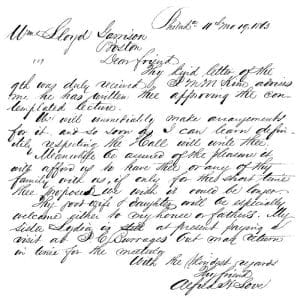 Philada 11th Mo 19, 1863
Wm Lloyd Garrison
Boston
Dear friend
Thy kind letter of the
9th was duly received & J M McKim advises
me he has written thee approving the con-
templated lecture.
We will immediately make arrangements
for it, and so soon as I can learn defin-
itely respecting the Hall will write thee.
Meanwhile be assured of the pleasure it
will afford us to have thee or any of thy
family with us, if only for the short time
thee proposes, we wish it could be longer.
Thy good wife & daughter will be especially
welcome either to my house or father's. My
sister Lydia is at present paying a
visit at but may return
in time for the meeting
With the kindest regards
Thy friend
Alfred H. Love